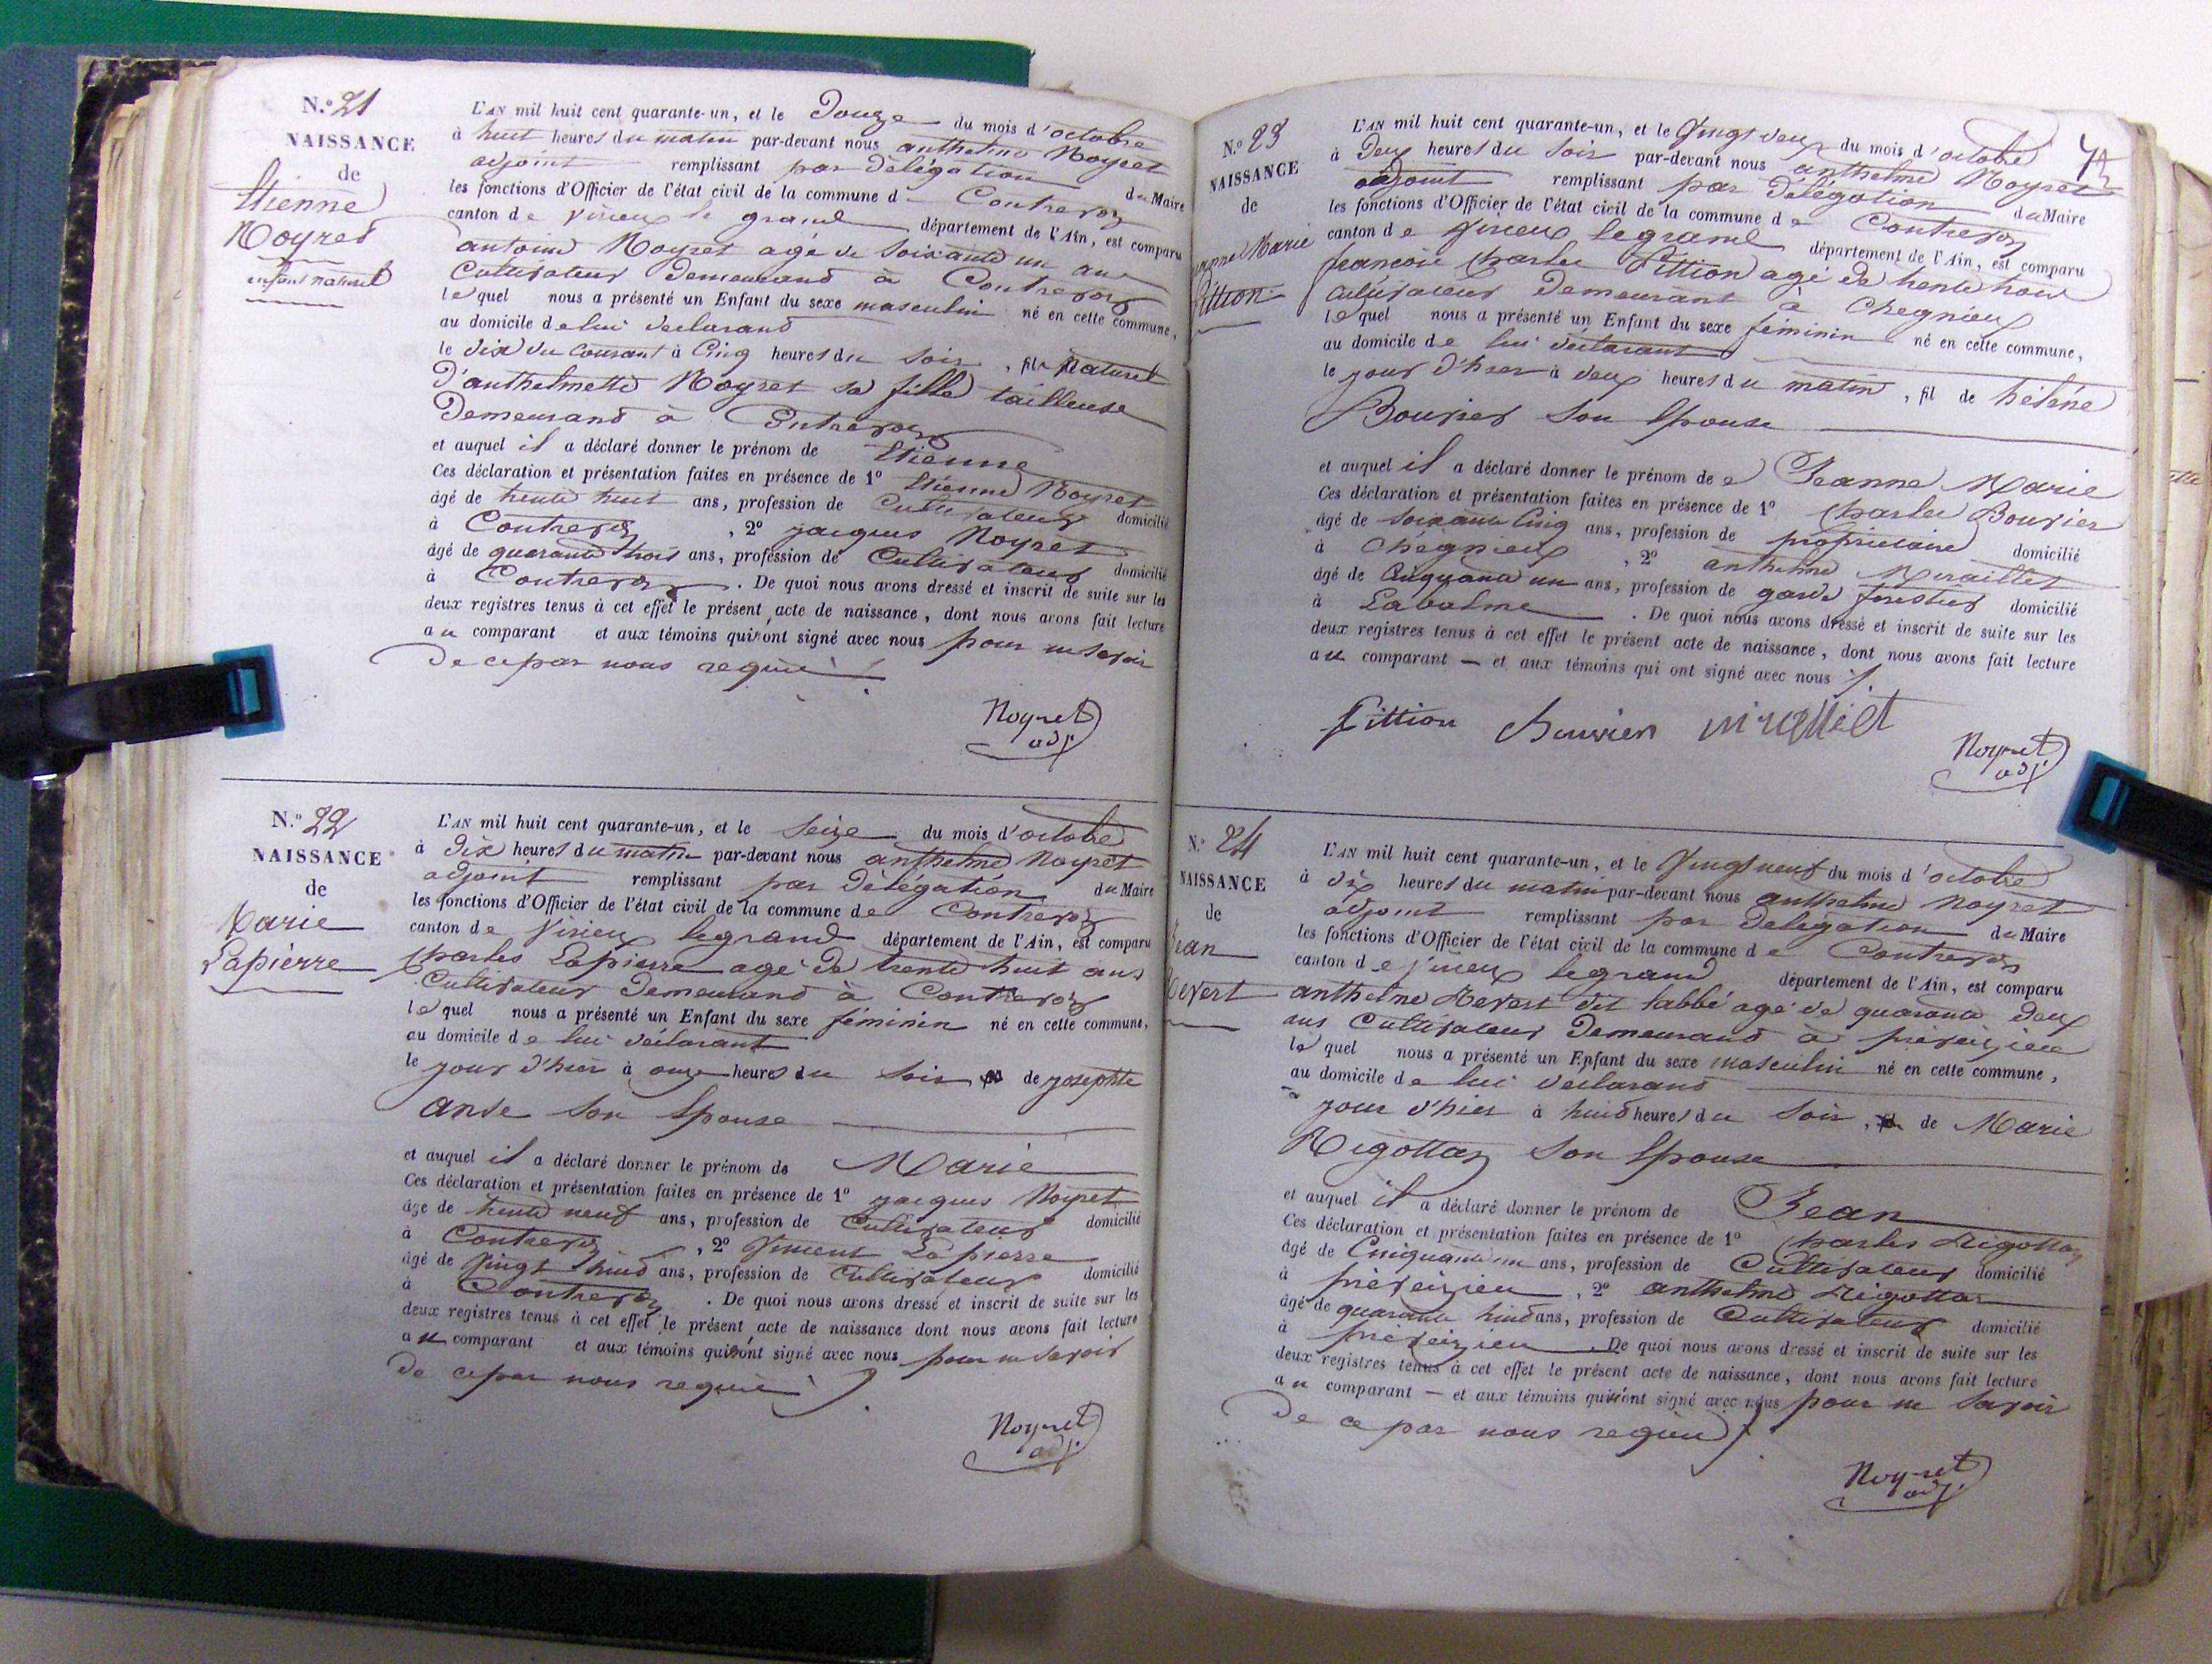 N.º 21
NAISSANCE
de
Etienne
Noyret
enfant naturel
L'AN mil huit cent quarante-un, et le Douze du mois d'octobre
à huit heures du matin par-devant nous anthelme Noyret
adjoint remplissant par Délégation du Maire
les fonctions d'Officier de l'état civil de la commune de Contrevoz
canton de Virieux le grand département de l'Ain, est comparu
antoine Noyret agé de soixante un ans
Cultivateur Demeurand à Contrevoz
lequel nous a présenté un Enfant du sexe masculin né en cette commune,
au domicile de lui declarand
le dix du courant à Cinq heures du soir, fils naturel
D'anthelmette Noyret sa fille tailleuse
Demeurand à Contrevoz
et auquel il a déclaré donner le prénom de Etienne
Ces déclaration et présentation faites en présence de 1º Etienne Noyret
âgé de trente huit ans, profession de Cultivateur domicilié
à Contrevoz, 2º jacques Noyret
âgé de quarante trois ans, profession de Cultivateur domicilié
à Contrevoz. De quoi nous avons dressé et inscrit de suite sur les
deux registres tenus à cet effet le présent acte de naissance, dont nous avons fait lecture
au comparant et aux témoins qui n'ont signé avec nous pour ne savoir
de ce par nous requis
Noyret
adj.
N.º 22
NAISSANCE
de
Marie
Lapierre
L'AN mil huit cent quarante-un, et le seize du mois d'octobre
à Dix heures du matin par-devant nous anthelme Noyret
adjoint remplissant par Délégation du Maire
les fonctions d'Officier de l'état civil de la commune de Contrevoz
canton de Virieux legrand département de l'Ain, est comparu
Charles Lapierre agé de trente huit ans
Cultivateur Demeurand à Contrevoz
lequel nous a présenté un Enfant du sexe féminin né en cette commune,
au domicile de lui déclarant
le jour d'hier à onze heures du soir de josephte
anse son Epouse
et auquel il a déclaré donner le prénom de Marie
Ces déclaration et présentation faites en présence de 1º jacques Noyret
âgé de trente neuf ans, profession de Cultivateur domicilié
à Contrevoz, 2º Vincent Lapierre
âgé de Vingt huid ans, profession de Cultivateur domicilié
à Contrevoz. De quoi nous avons dressé et inscrit de suite sur les
deux registres tenus à cet effet le présent acte de naissance dont nous avons fait lecture
au comparant et aux témoins qui n'ont signé avec nous pour ne savoir
de ce par nous requis
Noyret
adj.
N.º 23
NAISSANCE
de
Jeanne Marie
Pittion
L'AN mil huit cent quarante-un, et le Vingt deux du mois d'octobre
à Deux heures du soir par-devant nous anthelme Noyret
adjoint remplissant par Délégation du Maire
les fonctions d'Officier de l'état civil de la commune de Contrevoz
canton de Virieux legrand département de l'Ain, est comparu
francois Charles Pittion agé de trente trois
Cultivateur Demeurant à Chegnieux
lequel nous a présenté un Enfant du sexe féminin né en cette commune,
au domicile de lui déclarant
le jour d'hier à deux heures du matin, fil de hélène
Bouvier son Epouse
et auquel il a déclaré donner le prénom de Jeanne Marie
Ces déclaration et présentation faites en présence de 1º Charles Bouvier
âgé de soixante Cinq ans, profession de propriétaire domicilié
à Chegnieux, 2º anthelme
âgé de Cinquante un ans, profession de garde forestier domicilié
à Labalme. De quoi nous avons dressé et inscrit de suite sur les
deux registres tenus à cet effet le présent acte de naissance, dont nous avons fait lecture
au comparant — et aux témoins qui ont signé avec nous
Pittion Bouvier
Noyret
adj.
N.º 24
NAISSANCE
de
Jean
Revert
L'AN mil huit cent quarante-un, et le Vingt neuf du mois d'octobre
à dix heures du matin par-devant nous anthelme Noyret
adjoint remplissant par Délégation du Maire
les fonctions d'Officier de l'état civil de la commune de Contrevoz
canton de Virieux legrand département de l'Ain, est comparu
anthelme Revert dit labbé agé de quarante deux
ans Cultivateur Demeurand à preveizieu
lequel nous a présenté un Enfant du sexe masculin né en cette commune,
au domicile de lui declarand
jour d'hier à huid heures du soir, de Marie
Rigottaz son Epouse
et auquel il a déclaré donner le prénom de Jean
Ces déclaration et présentation faites en présence de 1º Charles Rigottaz
âgé de Cinquante un ans, profession de Cultivateur domicilié
à preveizieu, 2º anthelme Rigottaz
âgé de quarante huid ans, profession de Cultivateur domicilié
à preveizieu. De quoi nous avons dressé et inscrit de suite sur les
deux registres tenus à cet effet le présent acte de naissance, dont nous avons fait lecture
au comparant — et aux témoins qui n'ont signé avec nous pour ne savoir
De ce par nous requis
Noyret
adj.